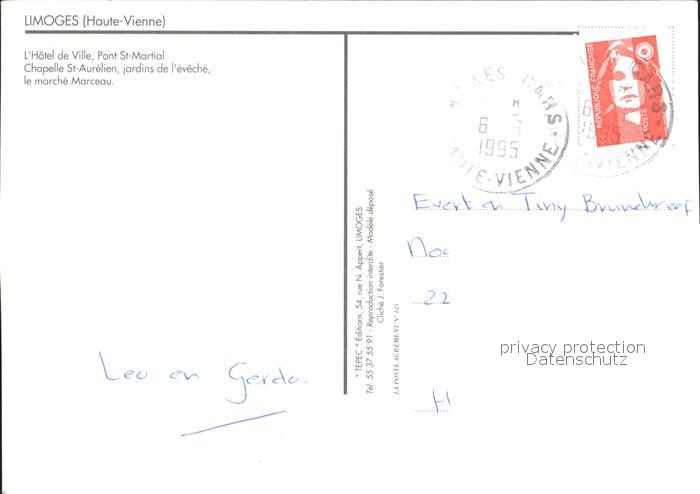 LIMOGES (Haute-Vienne)
L'Hôtel de Ville, Pont St-Martial
Chapelle St-Aurélien, jardins de l'évêché,
le marché Marceau.
LES CARS
6
1995
HAUTE-VIENNE
RÉPUBLIQUE FRANÇAISE
LA POSTE
CARS
1995
E-VIENNE
* TÉPEC * Éditions, 54, rue N. Appert, LIMOGES
Tél. 55 37 55 91 - Reproduction interdite - Modèle déposé
Cliché J. Forestier
LA POSTE AGRÉMENT N° 125
Evert en Tiny
22
H
privacy protection
Datenschutz
Leo en Gerda.